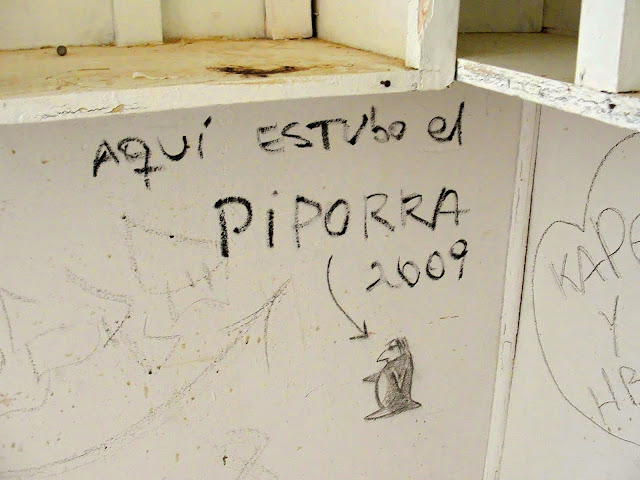 AQUÍ ESTUbo el
PiPORRA
2009
KAPE
Y
HE